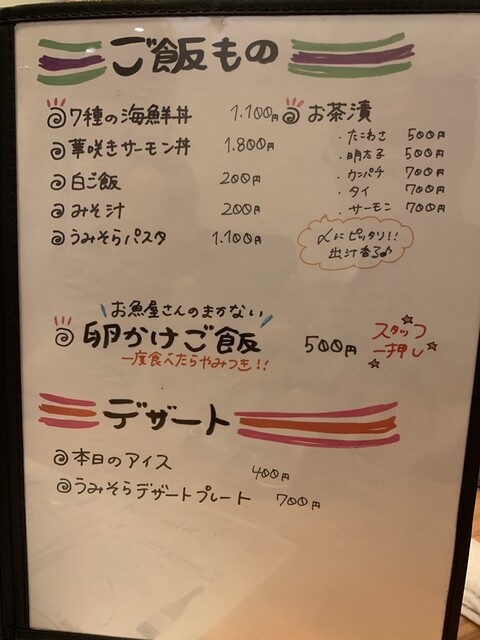 ご飯もの
7種の海鮮丼 1.100円
華咲きサーモン丼 1.800円
白ご飯 200円
みそ汁 200円
うみそらパスタ 1.100円
お茶漬
・たこわさ 500円
・明太子 500円
・カンパチ 700円
・タイ 700円
・サーモン 700円
〆にピッタリ!!
出汁香る♪
お魚屋さんのまかない
卵かけご飯 500円
一度食べたらやみつき!!
スタッフ
一押し
デザート
本日のアイス 400円
うみそらデザートプレート 700円